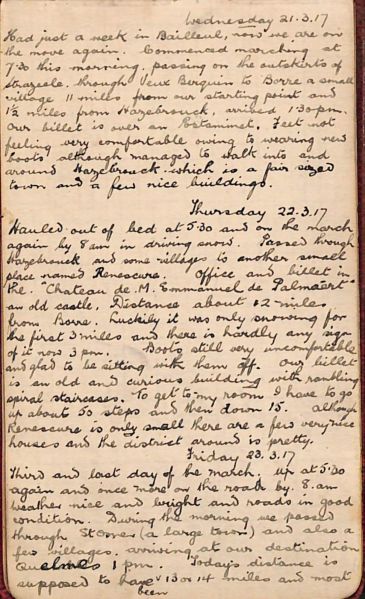 Wednesday 21.3.17
Had just a week in Bailleul, now we are on
the move again. Commenced marching at
7.30 this morning, passing on the outskirts of
Strazele, through Vieux Berquin to Borre a small
village 11 miles from our starting point and
1½ miles from Hazebrouck, arrived 1.30 pm.
Our billet is over an Estaminet. Feet not
feeling very comfortable owing to wearing new
boots although managed to walk into and
around Hazebrouck which is a fair sized
town and a few nice buildings.
Thursday 22.3.17
Hauled out of bed at 5.30 and on the march
again by 8 am in driving snow. Passed through
Hazebrouck and some villages to another small
place named Renescure. Office and billet in
the "Chateau de M. Emmanuel de Palmaert"
an old castle. Distance about 12 miles
from Borre. Luckily it was only snowing for
the first 3 miles and there is hardly any sign
of it now 3 pm. Boots still very uncomfortable
and glad to be sitting with them off. Our billet
is an old and curious building with rambling
spiral staircases. To get to my room I have to go
up about 50 steps and then down 15. Although
Renescure is only small there are a few very nice
houses and the district around is pretty.
Friday 23.3.17
Third and last day of the march. Up at 5.30
again and once more on the road by 8. am
Weather nice and bright and roads in good
condition. During the morning we passed
through St Omer (a large town) and also a
few villages, arriving at our destination
Quelmes 1 pm. Today's distance is
supposed to have been 13 or 14 miles and most